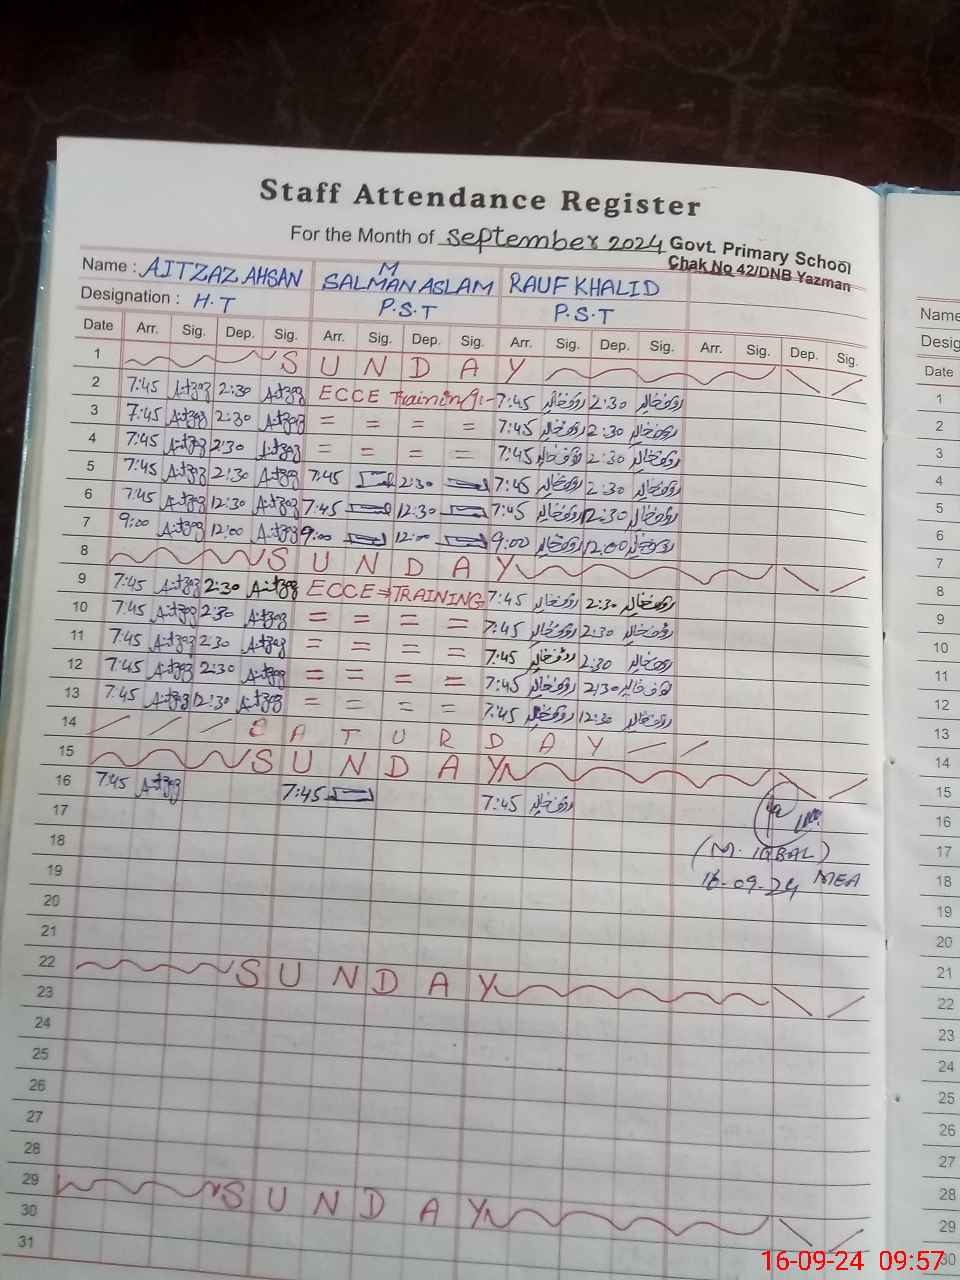 Staff Attendance Register
For the Month of September 2024 Govt. Primary School
Chak No 42/DNB Yazman
Name : AITZAZ AHSAN M SALMAN ASLAM RAUF KHALID
Designation : H.T P.S.T P.S.T
Date Arr. Sig. Dep. Sig. Arr. Sig. Dep. Sig. Arr. Sig. Dep. Sig. Arr. Sig. Dep. Sig.
1 SUNDAY
2 7:45 2:30 ECCE Training:- 7:45 رؤف خالد 2:30 رؤف خالد
3 7:45 2:30 = = = = 7:45 رؤف خالد 2:30 رؤف خالد
4 7:45 2:30 = = = = 7:45 رؤف خالد 2:30 رؤف خالد
5 7:45 2:30 7:45 2:30 7:45 رؤف خالد 2:30 رؤف خالد
6 7:45 12:30 7:45 12:30 7:45 رؤف خالد 12:30 رؤف خالد
7 9:00 12:00 9:00 12:00 9:00 رؤف خالد 12:00 رؤف خالد
8 SUNDAY
9 7:45 2:30 ECCE TRAINING 7:45 رؤف خالد 2:30 رؤف خالد
10 7:45 2:30 = = = = 7:45 رؤف خالد 2:30 رؤف خالد
11 7:45 2:30 = = = = 7:45 رؤف خالد 2:30 رؤف خالد
12 7:45 2:30 = = = = 7:45 رؤف خالد 2:30 رؤف خالد
13 7:45 12:30 = = = = 7:45 رؤف خالد 12:30 رؤف خالد
14 SATURDAY
15 SUNDAY
16 7:45 7:45 7:45 رؤف خالد
17
(M. IQBAL)
18
16-09-24 MEA
19
20
21
22 SUNDAY
23
24
25
26
27
28
29 SUNDAY
30
31
Name
Desig
Date
1
2
3
4
5
6
7
8
9
10
11
12
13
14
15
16
17
18
19
20
21
22
23
24
25
26
27
28
29
30
16-09-24 09:57